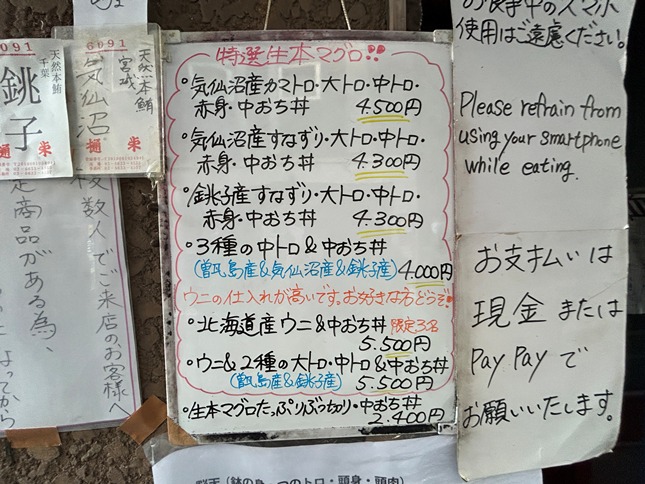 6091
天然本鮪
千葉
銚子
樋栄
6091
天然本鮪
宮城
気仙沼
樋栄
複数人でご来店のお客様へ
定商品がある為、
よってから
特選生本マグロ!!
・気仙沼産カマトロ・大トロ・中トロ・
赤身・中おち丼 4.500円
・気仙沼産すなずり・大トロ・中トロ・
赤身・中おち丼 4.300円
・銚子産すなずり・大トロ・中トロ・
赤身・中おち丼 4.300円
・3種の中トロ&中おち丼
(甑島産&気仙沼産&銚子産) 4.000円
ウニの仕入れが高いです。お好きな方どうぞ!
・北海道産ウニ&中おち丼 限定3名
5.500円
・ウニ&2種の大トロ・中トロ&中おち丼
(甑島産&銚子産) 5.500円
・生本マグロたっぷりぶつ切り・中おち丼
2.400円
お食事中のスマホ
使用はご遠慮ください。
Please refrain from
using your smartphone
while eating.
お支払いは
現金または
PayPayで
お願いいたします。
つのトロ・頭身・頭肉)